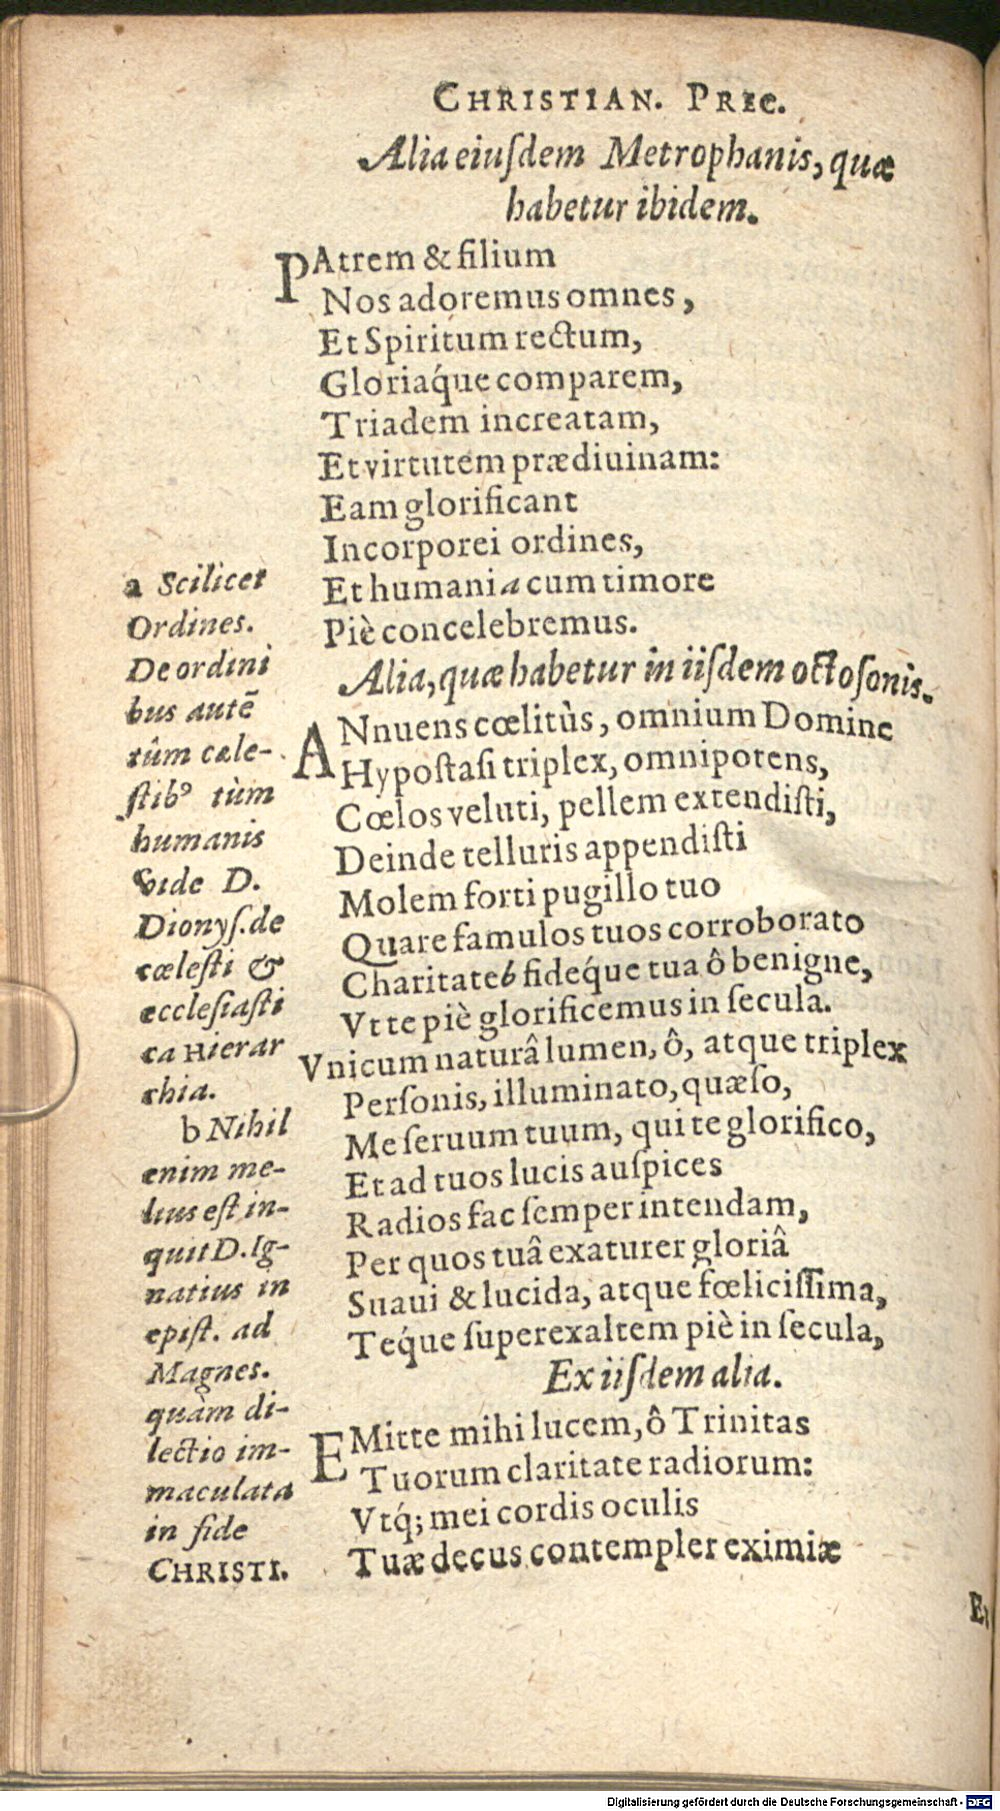 CHRISTIAN. PREC.
Alia eiuſdem Metrophanis, quæ
habetur ibidem.
PAtrem & filium
Nos adoremus omnes,
Et Spiritum rectum,
Gloriáque comparem,
Triadem increatam,
Et virtutem prædiuinam:
Eam glorificant
Incorporei ordines,
Et humani a cum timore
Piè concelebremus.
Alia, quæ habetur in iiſdem octoſonis.
ANnuens cœlitùs, omnium Domine
Hypoſtaſi triplex, omnipotens,
Cœlos veluti, pellem extendiſti,
Deinde telluris appendiſti
Molem forti pugillo tuo
Quare famulos tuos corroborato
Charitate b fidéque tua ô benigne,
Vt te piè glorificemus in ſecula.
Vnicum naturâ lumen, ô, atque triplex
Perſonis, illuminato, quæſo,
Me ſeruum tuum, qui te glorifico,
Et ad tuos lucis auſpices
Radios fac ſemper intendam,
Per quos tuâ exaturer gloriâ
Suaui & lucida, atque fœliciſſima,
Teq́ue ſuperexaltem piè in ſecula,
Ex iiſdem alia.
EMitte mihi lucem, ô Trinitas
Tuorum claritate radiorum:
Vtq́; mei cordis oculis
Tuæ decus contempler eximiæ
a Scilicet
Ordines.
De ordini
bus autẽ
tùm cæle-
ſtibꝰ tùm
humanis
vide D.
Dionyſ. de
cœleſti &
eccleſiaſti
ca Hierar
chia.
b Nihil
enim me-
lius eſt in-
quit D. Ig-
natius in
epiſt. ad
Magnes.
quàm di-
lectio im-
maculata
in fide
CHRISTI.
Digitalisierung gefördert durch die Deutsche Forschungsgemeinschaft - DFG